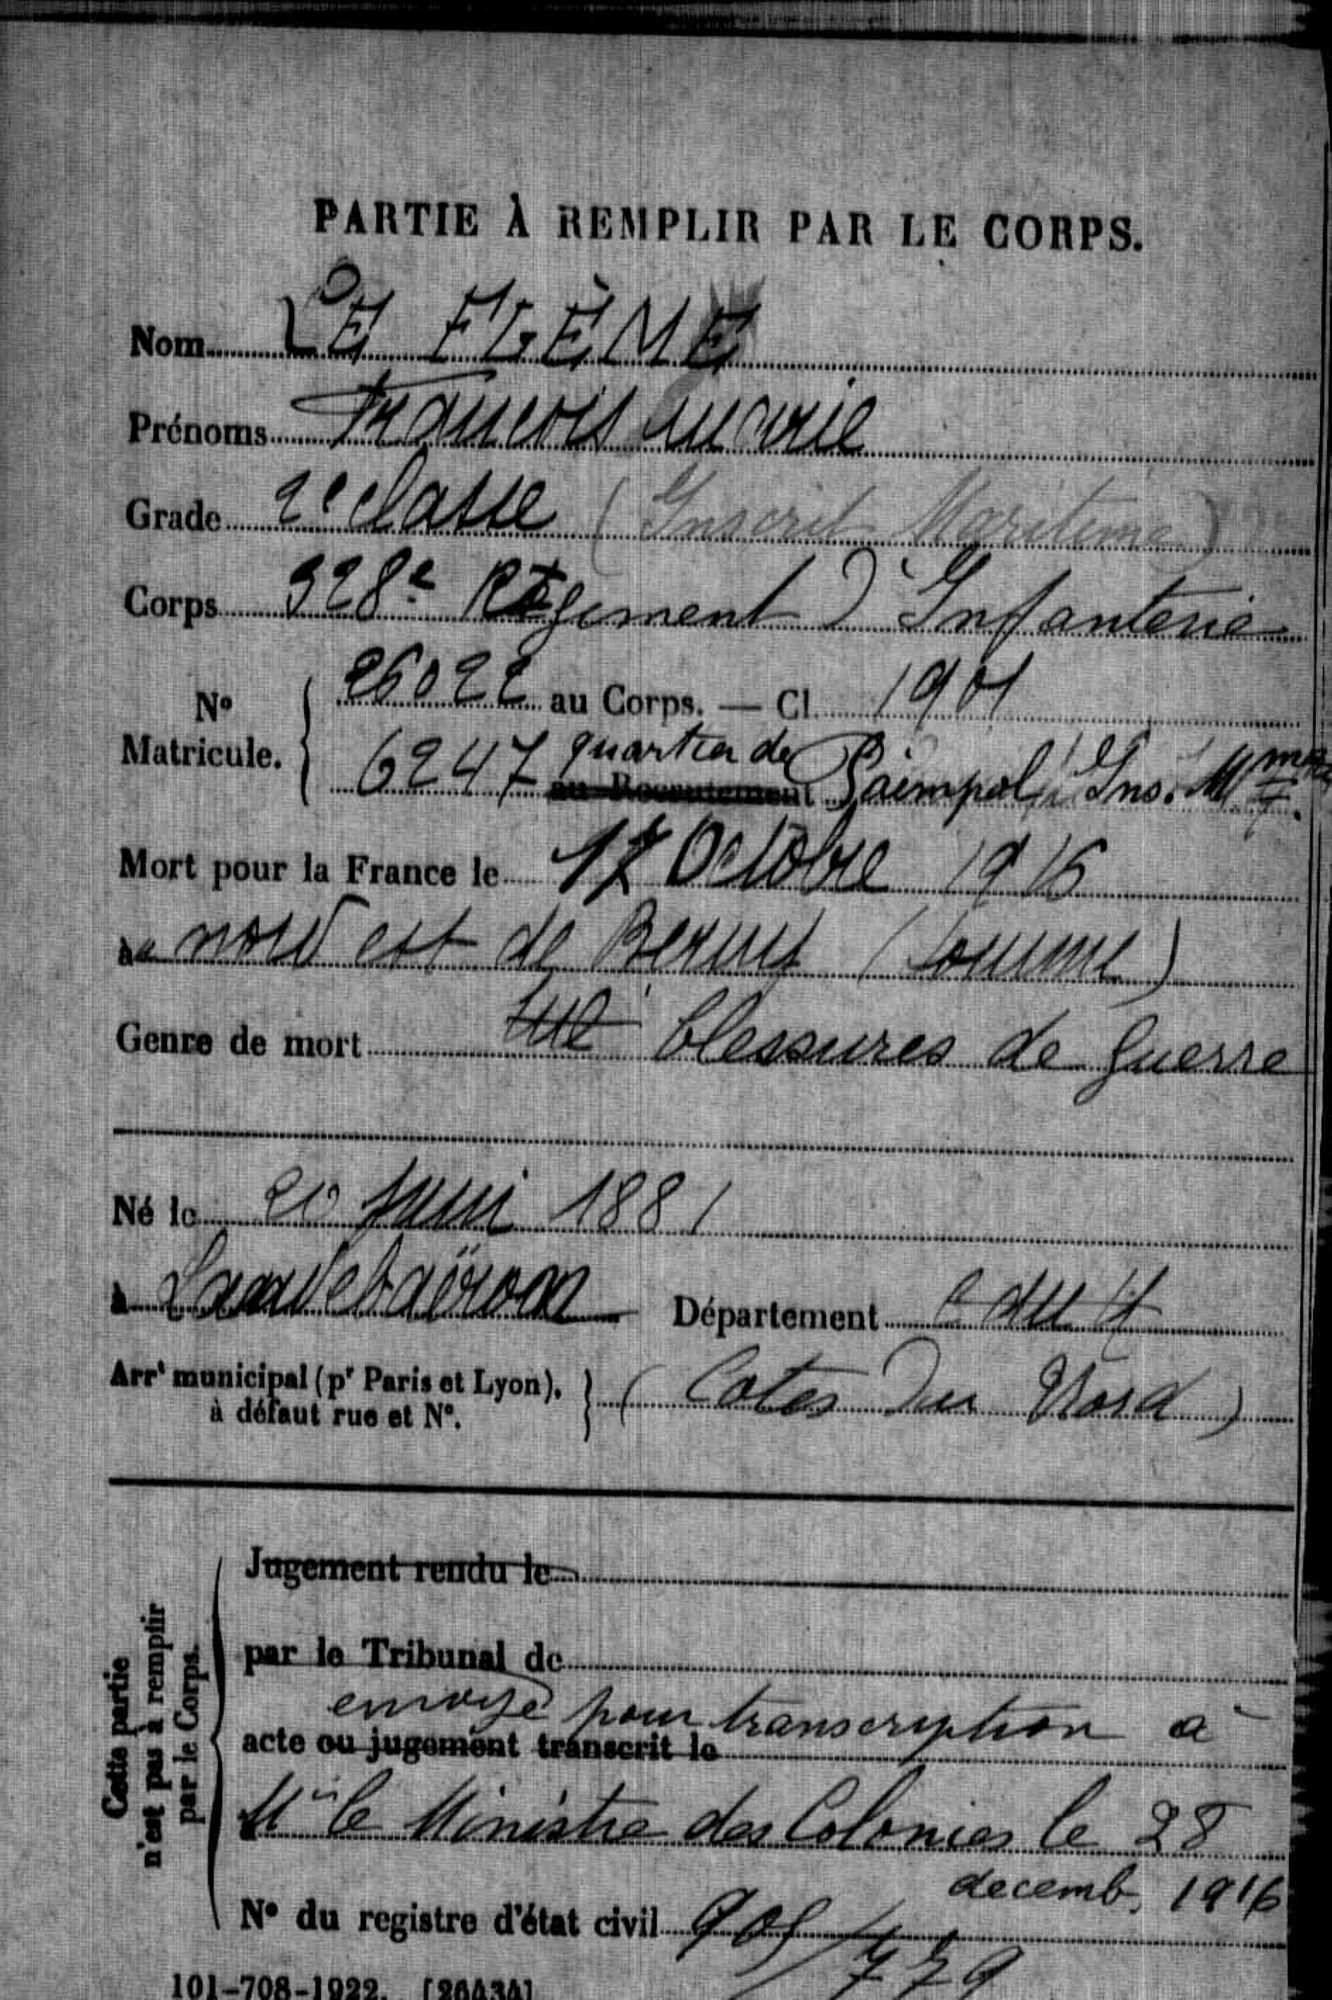 PARTIE À REMPLIR PAR LE CORPS.
Nom LE FLÈME
Prénoms François Marie
Grade 2e classe (Inscrit Maritime)
Corps 328e Régiment d'Infanterie
No Matricule. 26022 au Corps. — Cl. 1901
6247 quartier de au Recrutement Paimpol Ins. Mme
Mort pour la France le 17 Octobre 1916
à nord est de Berny (Somme)
Genre de mort tué blessures de guerre
Né le 20 Juin 1881
à Département C du N
Arrt municipal (pr Paris et Lyon), (Cotes du Nord)
à défaut rue et No.
Cette partie n'est pas à remplir par le Corps.
Jugement rendu le
par le Tribunal de
envoyé pour transcription à
acte ou jugement transcrit le
Mr le Ministre des Colonies le 28
decemb. 1916
No du registre d'état civil 905/779
101-708-1922. [26434]